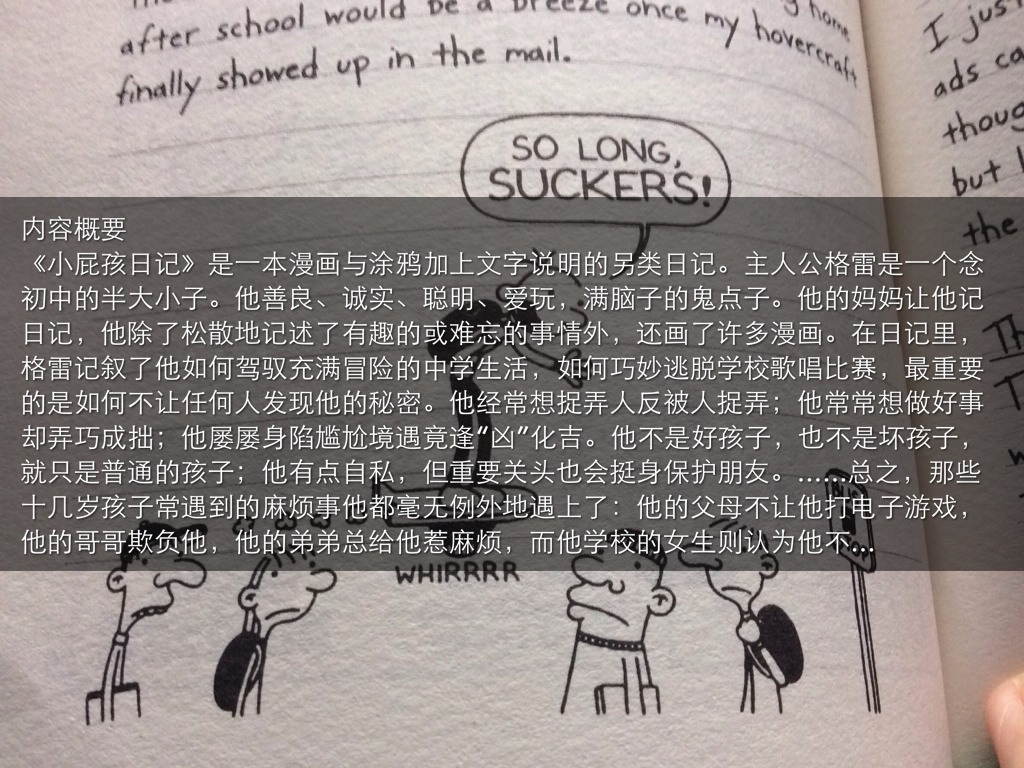 after school would be a breeze once my hovercraft
finally showed up in the mail.
home
I jus
ads ca
thoug
but I
the
SO LONG,
SUCKERS!
内容概要
《小屁孩日记》是一本漫画与涂鸦加上文字说明的另类日记。主人公格雷是一个念
初中的半大小子。他善良、诚实、聪明、爱玩，满脑子的鬼点子。他的妈妈让他记
日记，他除了松散地记述了有趣的或难忘的事情外，还画了许多漫画。在日记里，
格雷记叙了他如何驾驭充满冒险的中学生活，如何巧妙逃脱学校歌唱比赛，最重要
的是如何不让任何人发现他的秘密。他经常想捉弄人反被人捉弄；他常常想做好事
却弄巧成拙；他屡屡身陷尴尬境遇竟逢“凶”化吉。他不是好孩子，也不是坏孩子，
就只是普通的孩子；他有点自私，但重要关头也会挺身保护朋友。……总之，那些
十几岁孩子常遇到的麻烦事他都毫无例外地遇上了：他的父母不让他打电子游戏，
他的哥哥欺负他，他的弟弟总给他惹麻烦，而他学校的女生则认为他不...
WHIRRRR